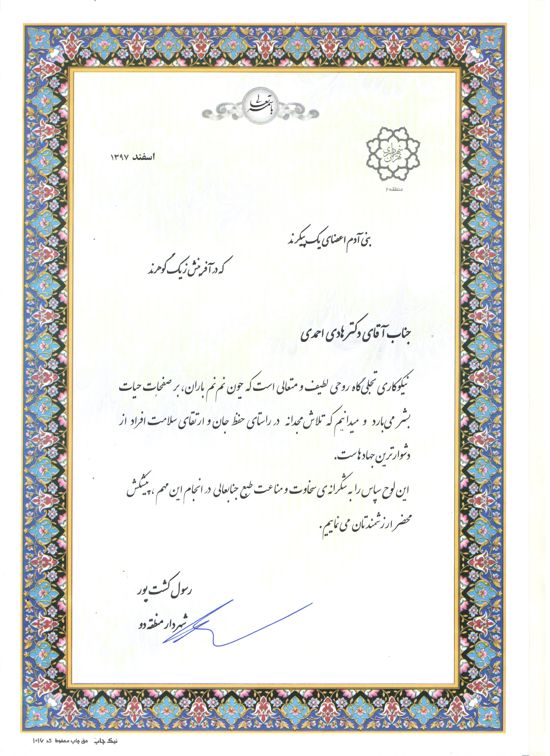 باسمه تعالی
اسفند ۱۳۹۷
شهرداری تهران
منطقه ۲
بنی آدم اعضای یک پیکرند
که در آفرینش ز یک گوهرند
جناب آقای دکتر هادی احمدی
نیکوکاری تجلی گاه روحی لطیف و متعالی است که چون نم نم باران، بر صفحات حیات
بشر می بارد و میدانیم که تلاش مجدانه در راستای حفظ جان و ارتقای سلامت افراد از
دشوارترین جهادهاست.
این لوح سپاس را به شکرانه ی سخاوت و مناعت طبع جنابعالی در انجام این مهم، پیشکش
محضر ارزشمندتان می نماییم.
رسول کشت پور
شهردار منطقه دو
نیک چاپ حق چاپ محفوظ کد